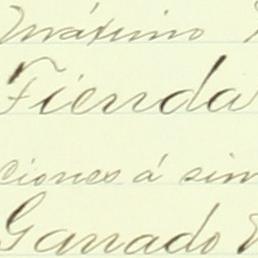 máximo
Tienda
ciones á sin
Ganado